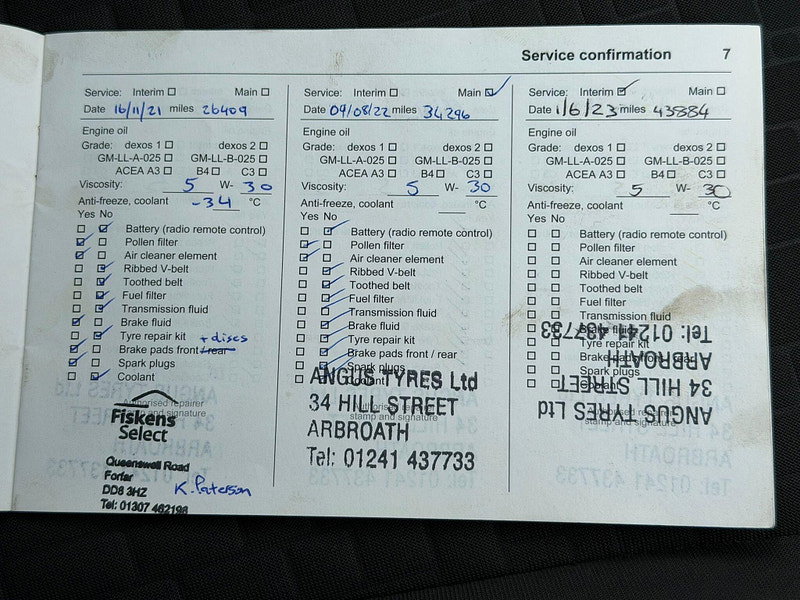 Service confirmation 7
Service: Interim Main
Date 16/11/21 miles 26409
Engine oil
Grade: dexos 1 dexos 2
GM-LL-A-025 GM-LL-B-025
ACEA A3 B4 C3
Viscosity: 5 W- 30
Anti-freeze, coolant -34 °C
Yes No
Battery (radio remote control)
Pollen filter
Air cleaner element
Ribbed V-belt
Toothed belt
Fuel filter
Transmission fluid
Brake fluid
Tyre repair kit + discs
Brake pads front / rear
Spark plugs
Coolant
Authorised repairer
stamp and signature
Fiskens
Select
Queenswell Road
Forfar
DD8 3HZ
Tel: 01307 462198
K. Paterson
Service: Interim Main
Date 09/08/22 miles 34296
Engine oil
Grade: dexos 1 dexos 2
GM-LL-A-025 GM-LL-B-025
ACEA A3 B4 C3
Viscosity: 5 W- 30
Anti-freeze, coolant °C
Yes No
Battery (radio remote control)
Pollen filter
Air cleaner element
Ribbed V-belt
Toothed belt
Fuel filter
Transmission fluid
Brake fluid
Tyre repair kit
Brake pads front / rear
Spark plugs
Coolant
Authorised repairer
stamp and signature
ANGUS TYRES Ltd
34 HILL STREET
ARBROATH
Tel: 01241 437733
Service: Interim Main
Date 1/6/23 miles 43884
Engine oil
Grade: dexos 1 dexos 2
GM-LL-A-025 GM-LL-B-025
ACEA A3 B4 C3
Viscosity: 5 W- 30
Anti-freeze, coolant °C
Yes No
Battery (radio remote control)
Pollen filter
Air cleaner element
Ribbed V-belt
Toothed belt
Fuel filter
Transmission fluid
Brake fluid
Tyre repair kit
Brake pads front / rear
Spark plugs
Coolant
Authorised repairer
stamp and signature
ANGUS TYRES Ltd
34 HILL STREET
ARBROATH
Tel: 01241 437733